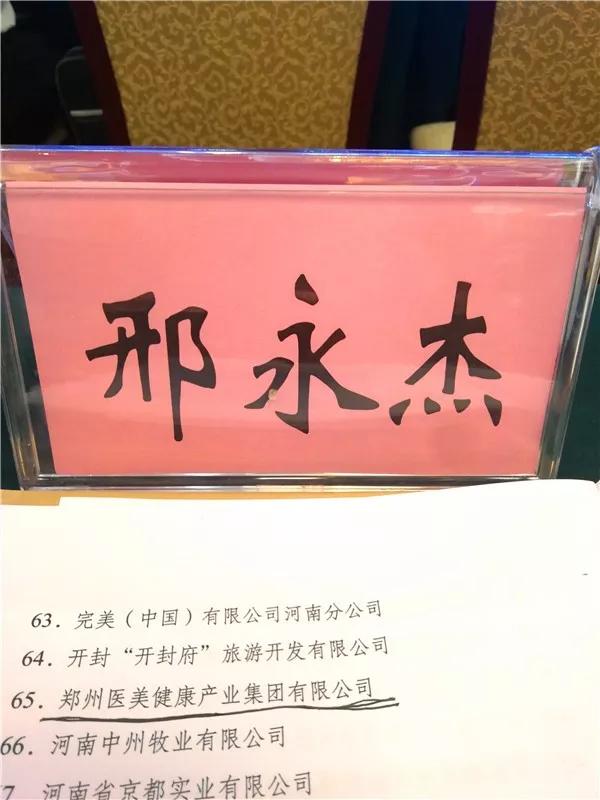 邢永杰
63. 完美（中国）有限公司河南分公司
64. 开封“开封府”旅游开发有限公司
65. 郑州医美健康产业集团有限公司
66. 河南中州牧业有限公司
7 河南省京都实业有限公司